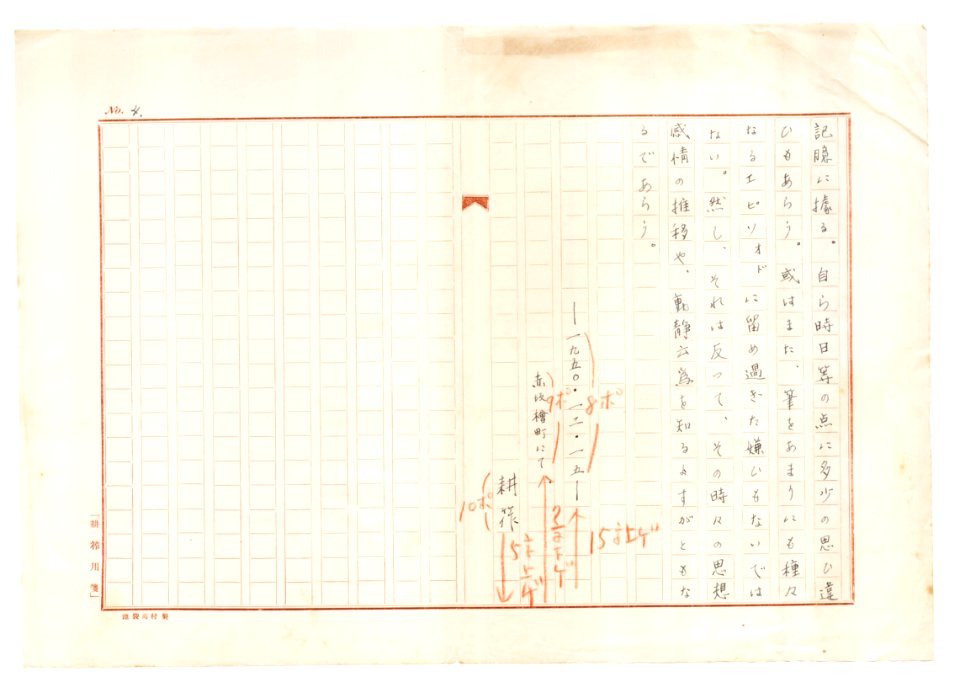 No. 4.
記臆に據る。自ら時日等の点に多少の思ひ違
ひもあらう。或はまた、筆をあまりにも種々
なるエピソオドに留め過ぎた嫌ひもないでは
ない。然し、それは反って、その時々の思想
感情の推移や、動静云爲を知るよすがともな
るであらう。
―一九五〇・一二・一五―
8ポ
15字上ゲ
赤坂檜町にて
9ポ
耕筰
10ポ
5字上ゲ
「耕筰用箋」